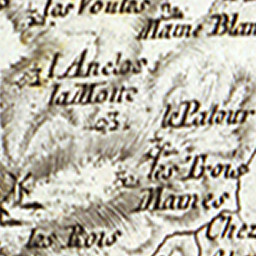 les Voutes
Maine Blan
l'Anclos
la Motte
le Patour
les Trois
Maines
les Rois
Chez